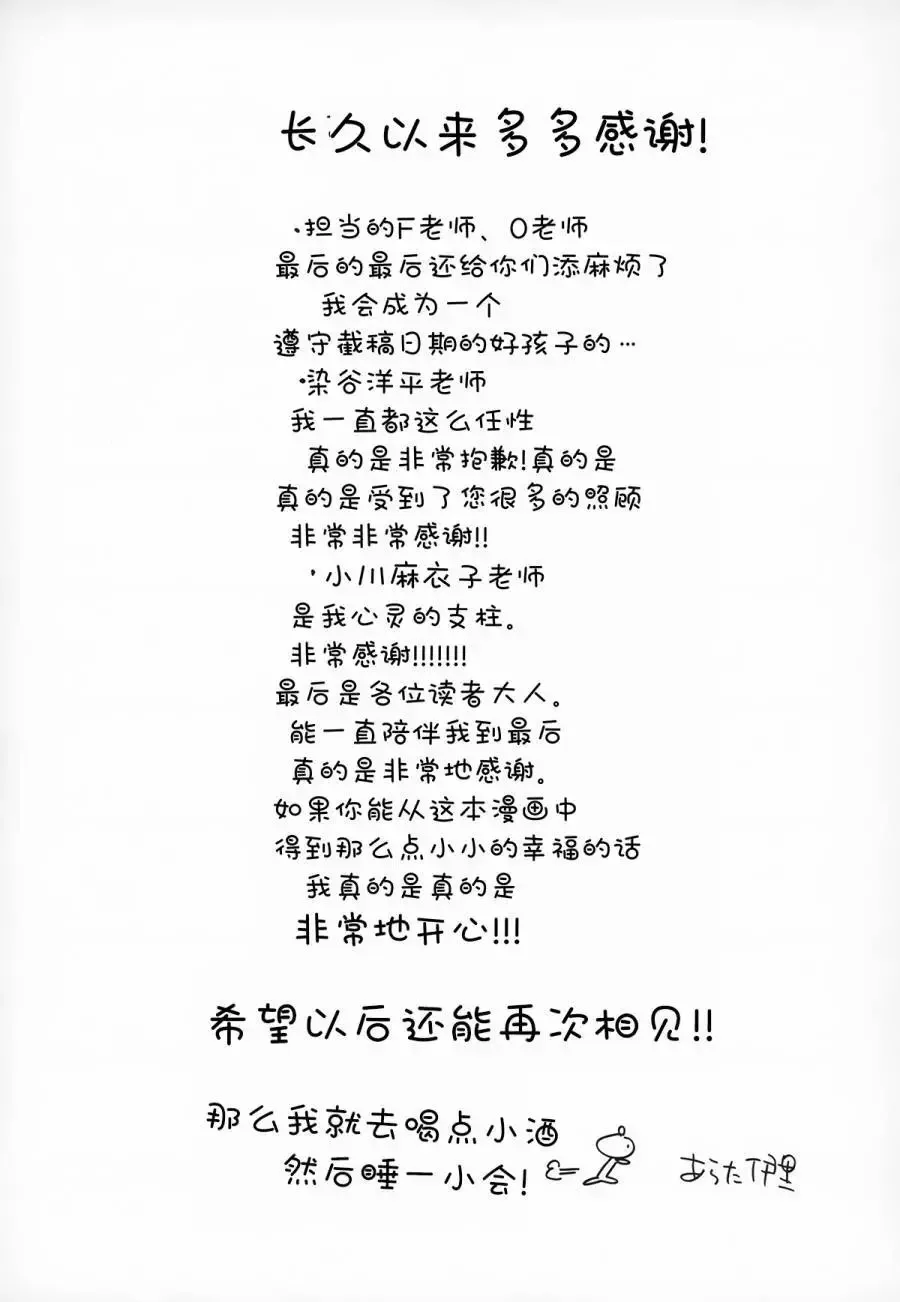 长久以来多多感谢!
·担当的F老师、O老师
最后的最后还给你们添麻烦了
我会成为一个
遵守截稿日期的好孩子的…
·染谷洋平老师
我一直都这么任性
真的是非常抱歉!真的是
真的是受到了您很多的照顾
非常非常感谢!!
·小川麻衣子老师
是我心灵的支柱。
非常感谢!!!!!!!
最后是各位读者大人。
能一直陪伴我到最后
真的是非常地感谢。
如果你能从这本漫画中
得到那么点小小的幸福的话
我真的是真的是
非常地开心!!!
希望以后还能再次相见!!
那么我就去喝点小酒
然后睡一小会!
あらた伊里